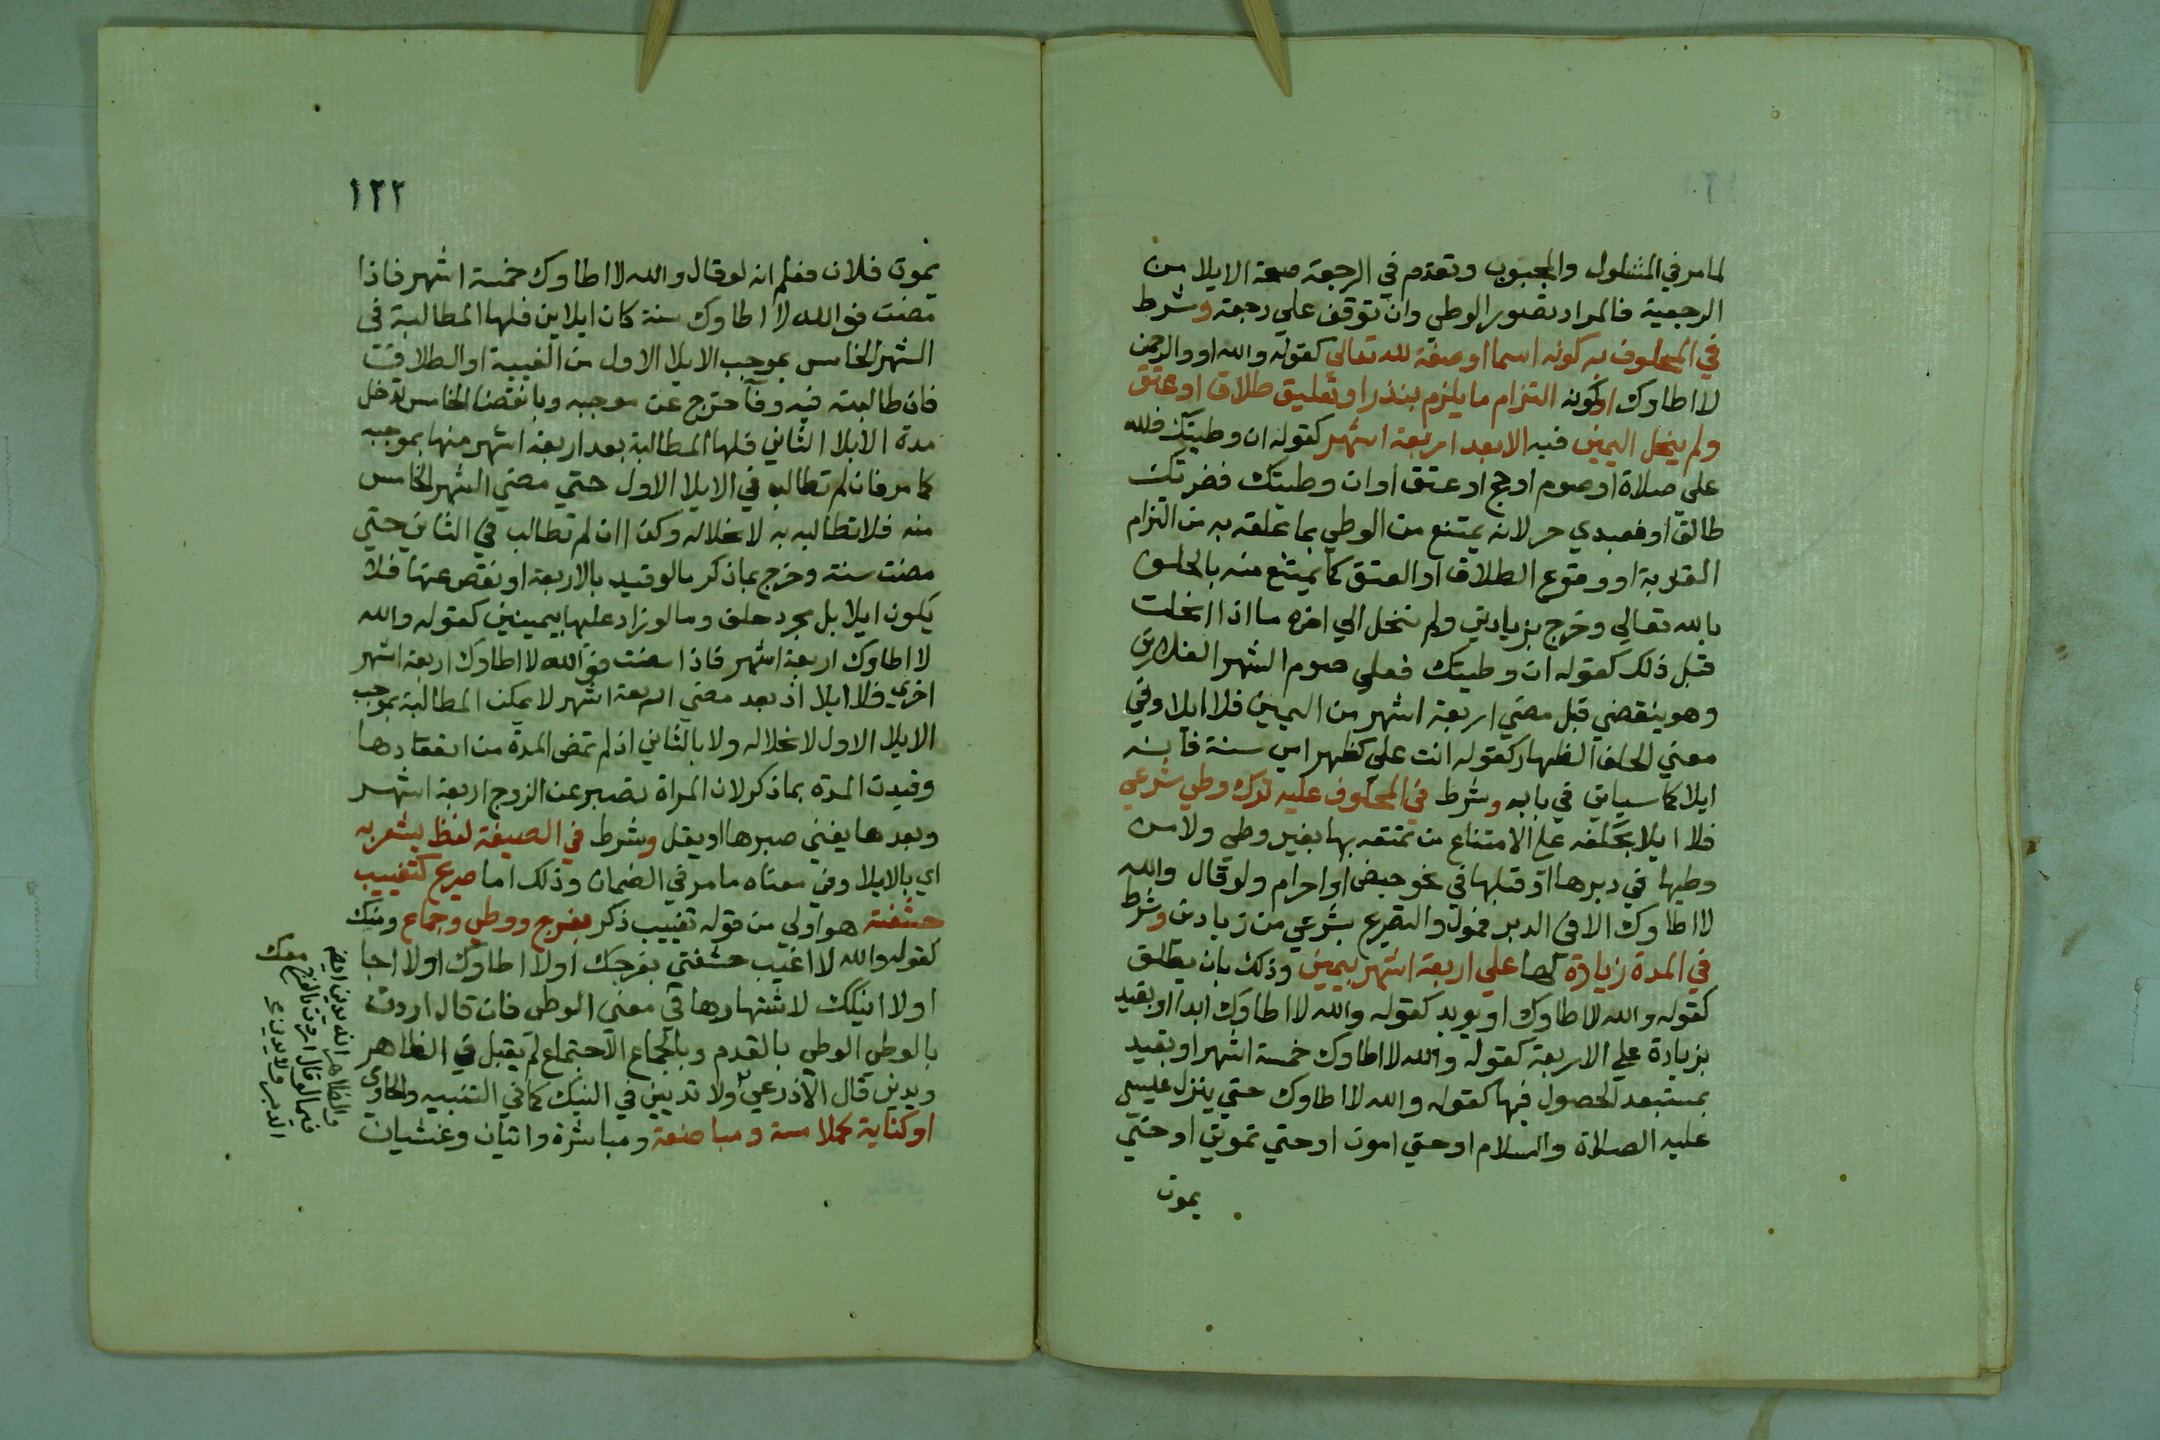 لما مر في المشلول والمجبوب وتقدم في الرجعة صحة الايلا من
الرجعية فالمراد تصور الوطي وان توقف علي رجعة وشرط
في المحلوف به كونه اسما او صفة لله تعالي كقوله والله او والرحمن
لا اطاوك او كونه التزام ما يلزم بنذر او تعليق طلاق او عتق
ولم ينحل اليمين فيه الا بعد اربعة اشهر كقوله ان وطيتك فلله
علي صلاة او صوم او حج او عتق او ان وطيتك فضرتك
طالق او فعبدي حر لانه يمتنع من الوطي بما علقه به من التزام
القربة او وقوع الطلاق او العتق كما يمتنع منه بالحلف
بالله تعالي وخرج بزيادتي ولم تنحل الي اخره ما اذا انحلت
قبل ذلك كقوله ان وطيتك فعلي صوم الشهر الفلاني
وهو ينقضي قبل مضي اربعة اشهر من اليمين فلا ايلا وفي
معني الحلف الظهار كقوله انت علي كظهر امي سنة فانه
ايلا كما سياتي في بابه وشرط في المحلوف عليه ترك وطي شرعي
فلا ايلا بحلفه علي الامتناع من تمتعه بها بغير وطي ولا من
وطيها في دبرها او قبلها في نحو حيض او احرام ولو قال والله
لا اطاوك الا في الدبر فمول والتصريح بشرعي من زيادتي وشرط
في المدة زيادة لها علي اربعة اشهر بيمين وذلك بان يطلق
كقوله والله لا اطاوك او يويد كقوله والله لا اطاوك ابدا او يقيد
بزيادة علي الاربعة كقوله والله لا اطاوك خمسة اشهر او يقيد
بمستبعد الحصول فيها كقوله والله لا اطاوك حتي ينزل عيسي
عليه الصلاة والسلام او حتي اموت او حتي تموتي او حتي
يموت
١٢٢
يموت فلان فعلم انه لو قال والله لا اطاوك خمسة اشهر فاذا
مضت فوالله لا اطاوك سنة كان ايلاين فلها المطالبة في
الشهر الخامس بموجب الايلا الاول من الفيية او الطلاق
فان طالبته فيه وفا خرج عن موجبه وبانقضا الخامس تدخل
مدة الايلا الثاني فلها المطالبة بعد اربعة اشهر منها بموجبه
كما مر فان لم تطالبه في الايلا الاول حتي مضي الشهر الخامس
منه فلا تطالبه به لانحلاله وكذا ان لم تطالب في الثاني حتي
مضت سنة وخرج بما ذكر ما لو قيد بالاربعة او نقص عنها فلا
يكون ايلا بل مجرد حلف وما لو زاد عليها بيمينين كقوله والله
لا اطاوك اربعة اشهر فاذا مضت فوالله لا اطاوك اربعة اشهر
اخري فلا ايلا اذ بعد مضي اربعة اشهر لا يمكن المطالبة بموجب
الايلا الاول لانحلاله ولا بالثاني اذ لم تمض المدة من انعقادها
وقيدت المدة بما ذكر لان المراة تصبر عن الزوج اربعة اشهر
وبعدها يفني صبرها او يقل وشرط في الصيغة لفظ يشعر به
اي بالايلا وفي معناه ما مر في الضمان وذلك اما صريح كتغييب
حشفته هو اولي من قوله تغييب ذكر بفرج ووطي وجماع ونيك
كقوله والله لا اغيب حشفتي بفرجك او لا اطاوك او لا اجا
او لا انيكك لاشتهارها في معني الوطي فان قال اردت
بالوطي الوطي بالقدم وبالجماع الاجتماع لم يقبل في الظاهر
ويدين قال الاذرعي ولا تديين في النيك كما في التنبيه والحاوي
او كناية كملامسة ومباضعة ومباشرة واتيان وغشيان
معك
والظاهر انه يدين ايضا
فيما لو قال اردت بالفرج
الدبر ولا يدين